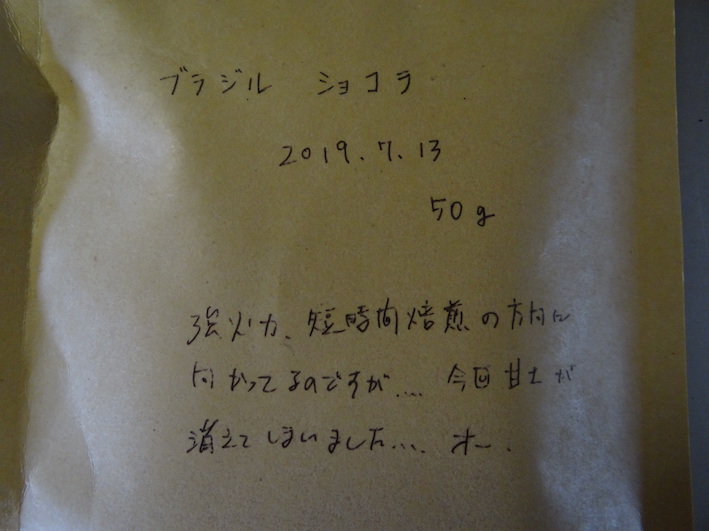 ブラジル ショコラ
2019.7.13
50g
強火力、短時間焙煎の方向に
向かってるのですが... 今回甘さが
消えてしまいました.... オー.